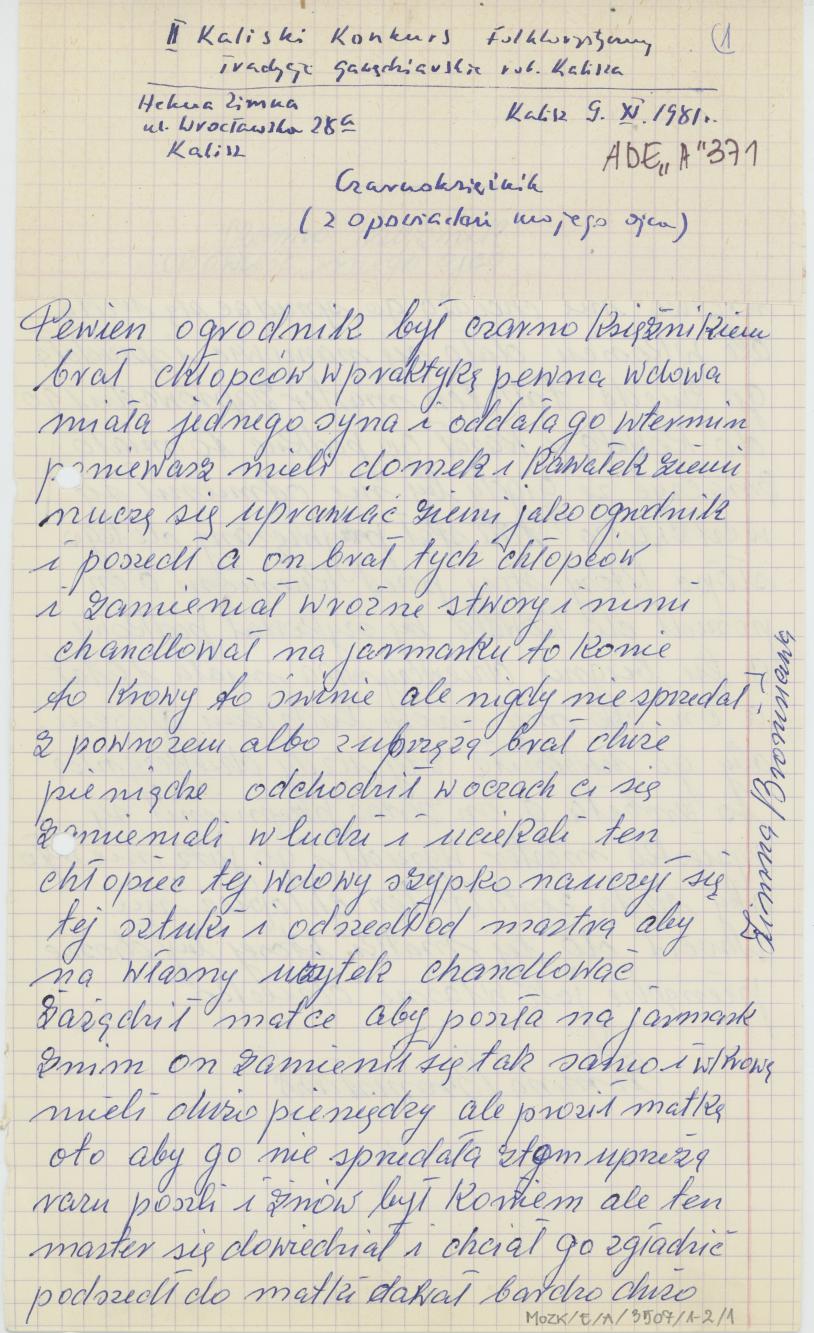 II Kaliski Konkurs Folklorystyczny
①
Tradycje gawędziarskie rob. Kalisza
Helena Zimna
ul. Wrocławska 28a
Kalisz
Kalisz 9. XI. 1981r.
ADE „A" 371
Czarnoksiężnik
(z opowiadań mojego ojca)
Pewien ogrodnik był czarno księżnikiem
brał chłopców w praktykę pewna wdowa
miała jednego syna i oddała go w termin
poniewasz mieli domek i kawałek ziemi
nuczę się uprawiać ziemi jako ogrodnik
i poszedł a on brał tych chłopców
i zamieniał w rożne stwory i nimi
chandlował na jarmarku to konie
to krowy to świnie ale nigdy nie sprzedał
z powrozem albo z uprzężą brał duże
pieniądze odchodził w oczach ci się
zamieniali w ludzi i uciekali ten
chłopiec tej wdowy szypko nauczył się
tej sztuki i odszedł od mastra aby
na własny użytek chandlować
Zażądził matce aby poszła na jarmark
znim on zamienił się tak samo i w krowę
mieli dużo pieniędzy ale prosił matkę
oto aby go nie sprzedała z tom uprzężą
razu poszli i znów był koniem ale ten
master się dowiedział i chciał go zgładzić
podszedł do matki dawał bardzo dużo
Zimna Bronisława
MOZK/E/A/3507/1-2/1